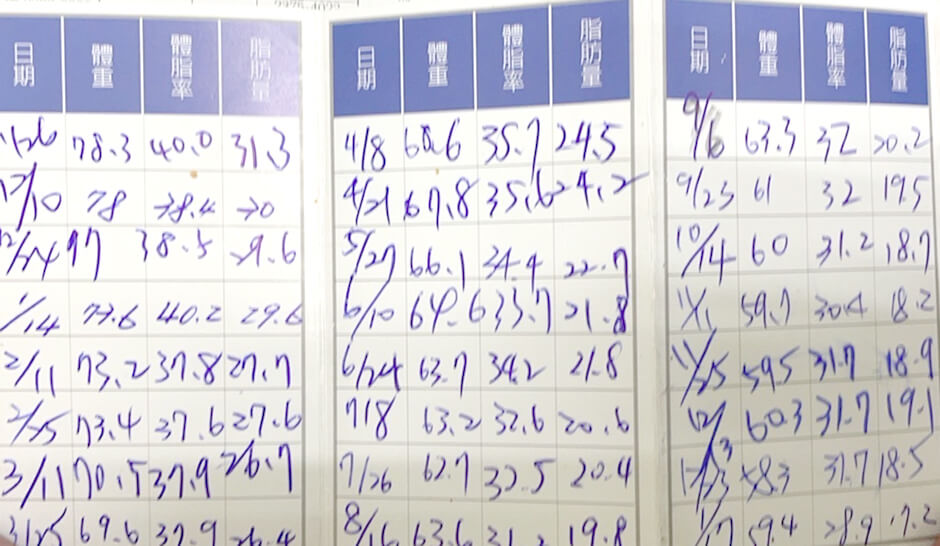 日期 體重 體脂率 脂肪量
11/26 78.3 40.0 31.3
12/10 78 38.4 30
12/24 77 38.5 29.6
1/14 73.6 40.2 29.6
2/11 73.2 37.8 27.7
2/25 73.4 37.6 27.6
3/11 70.5 37.9 26.7
3/25 69.6 37.9 26.4
日期 體重 體脂率 脂肪量
4/8 68.6 35.7 24.5
4/21 67.8 35.6 24.2
5/27 66.1 34.4 22.7
6/10 64.6 33.7 21.8
6/24 63.7 34.2 21.8
7/8 63.2 32.6 20.6
7/26 62.7 32.5 20.4
8/16 63.6 19.8
日期 體重 體脂率 脂肪量
9/6 63.3 32 20.2
9/23 61 32 19.5
10/14 60 31.2 18.7
11/1 59.7 30.4 18.2
11/25 59.5 31.7 18.9
60.3 31.7 19.1
12/23 58.3 31.7 18.5
1/7 59.4 28.9 17.2